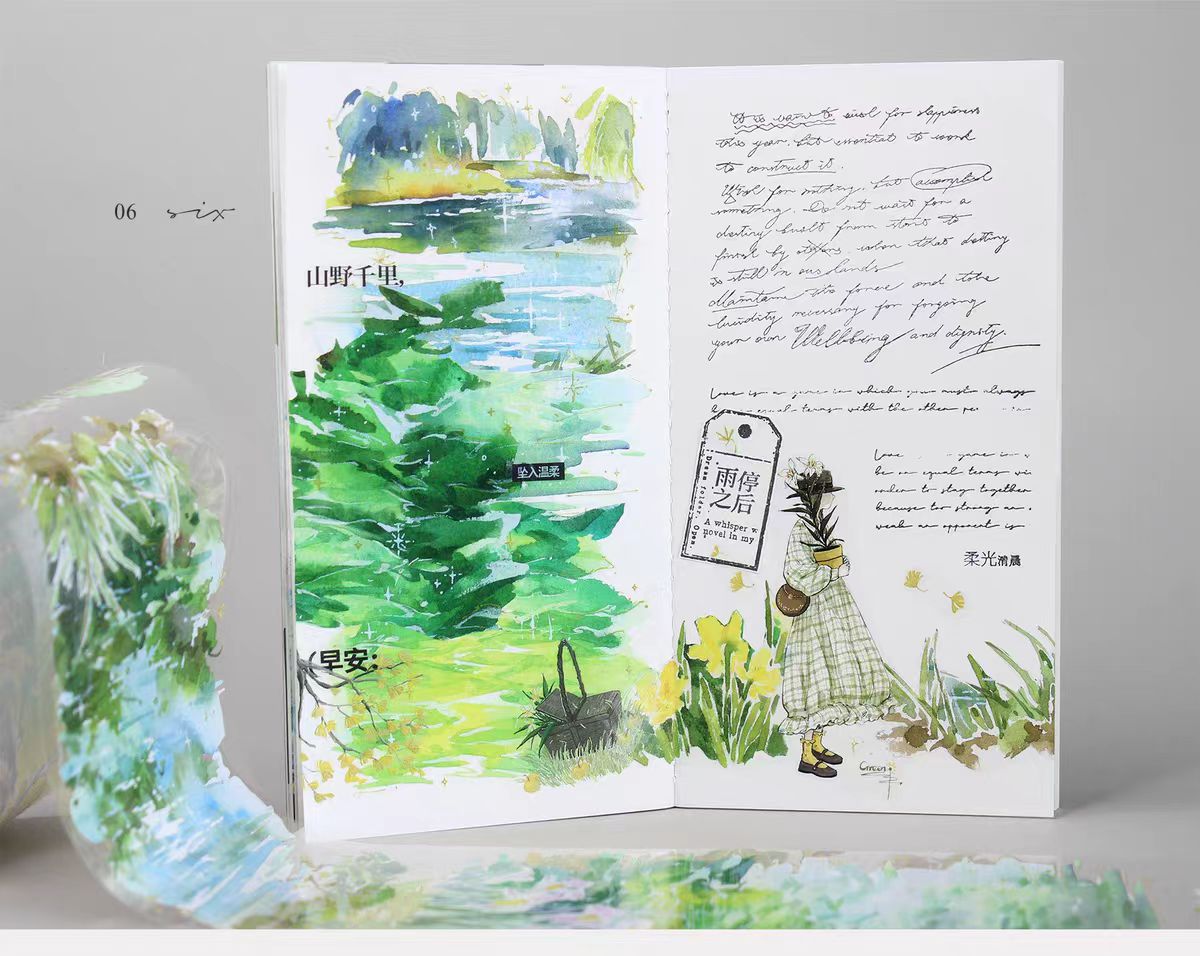 06 six
山野千里,
坠入温柔
早安;
It is vain to wish for happiness
this year, but essential to work
to construct it.
Wish for nothing, but accomplish
something. Do not wait for a
destiny built from start to
finish by
when that destiny
is still in our hands
Maintain the force and the
lucidity necessary for forging
your own Wellbeing and dignity.
Love is a game in which one must always
equal terms with the other
雨停
之后
Dream folder. Open.
A whisper
novel in my
Love
be on equal terms
order to stay together
because too strong
weak an opponent is
柔光
Green